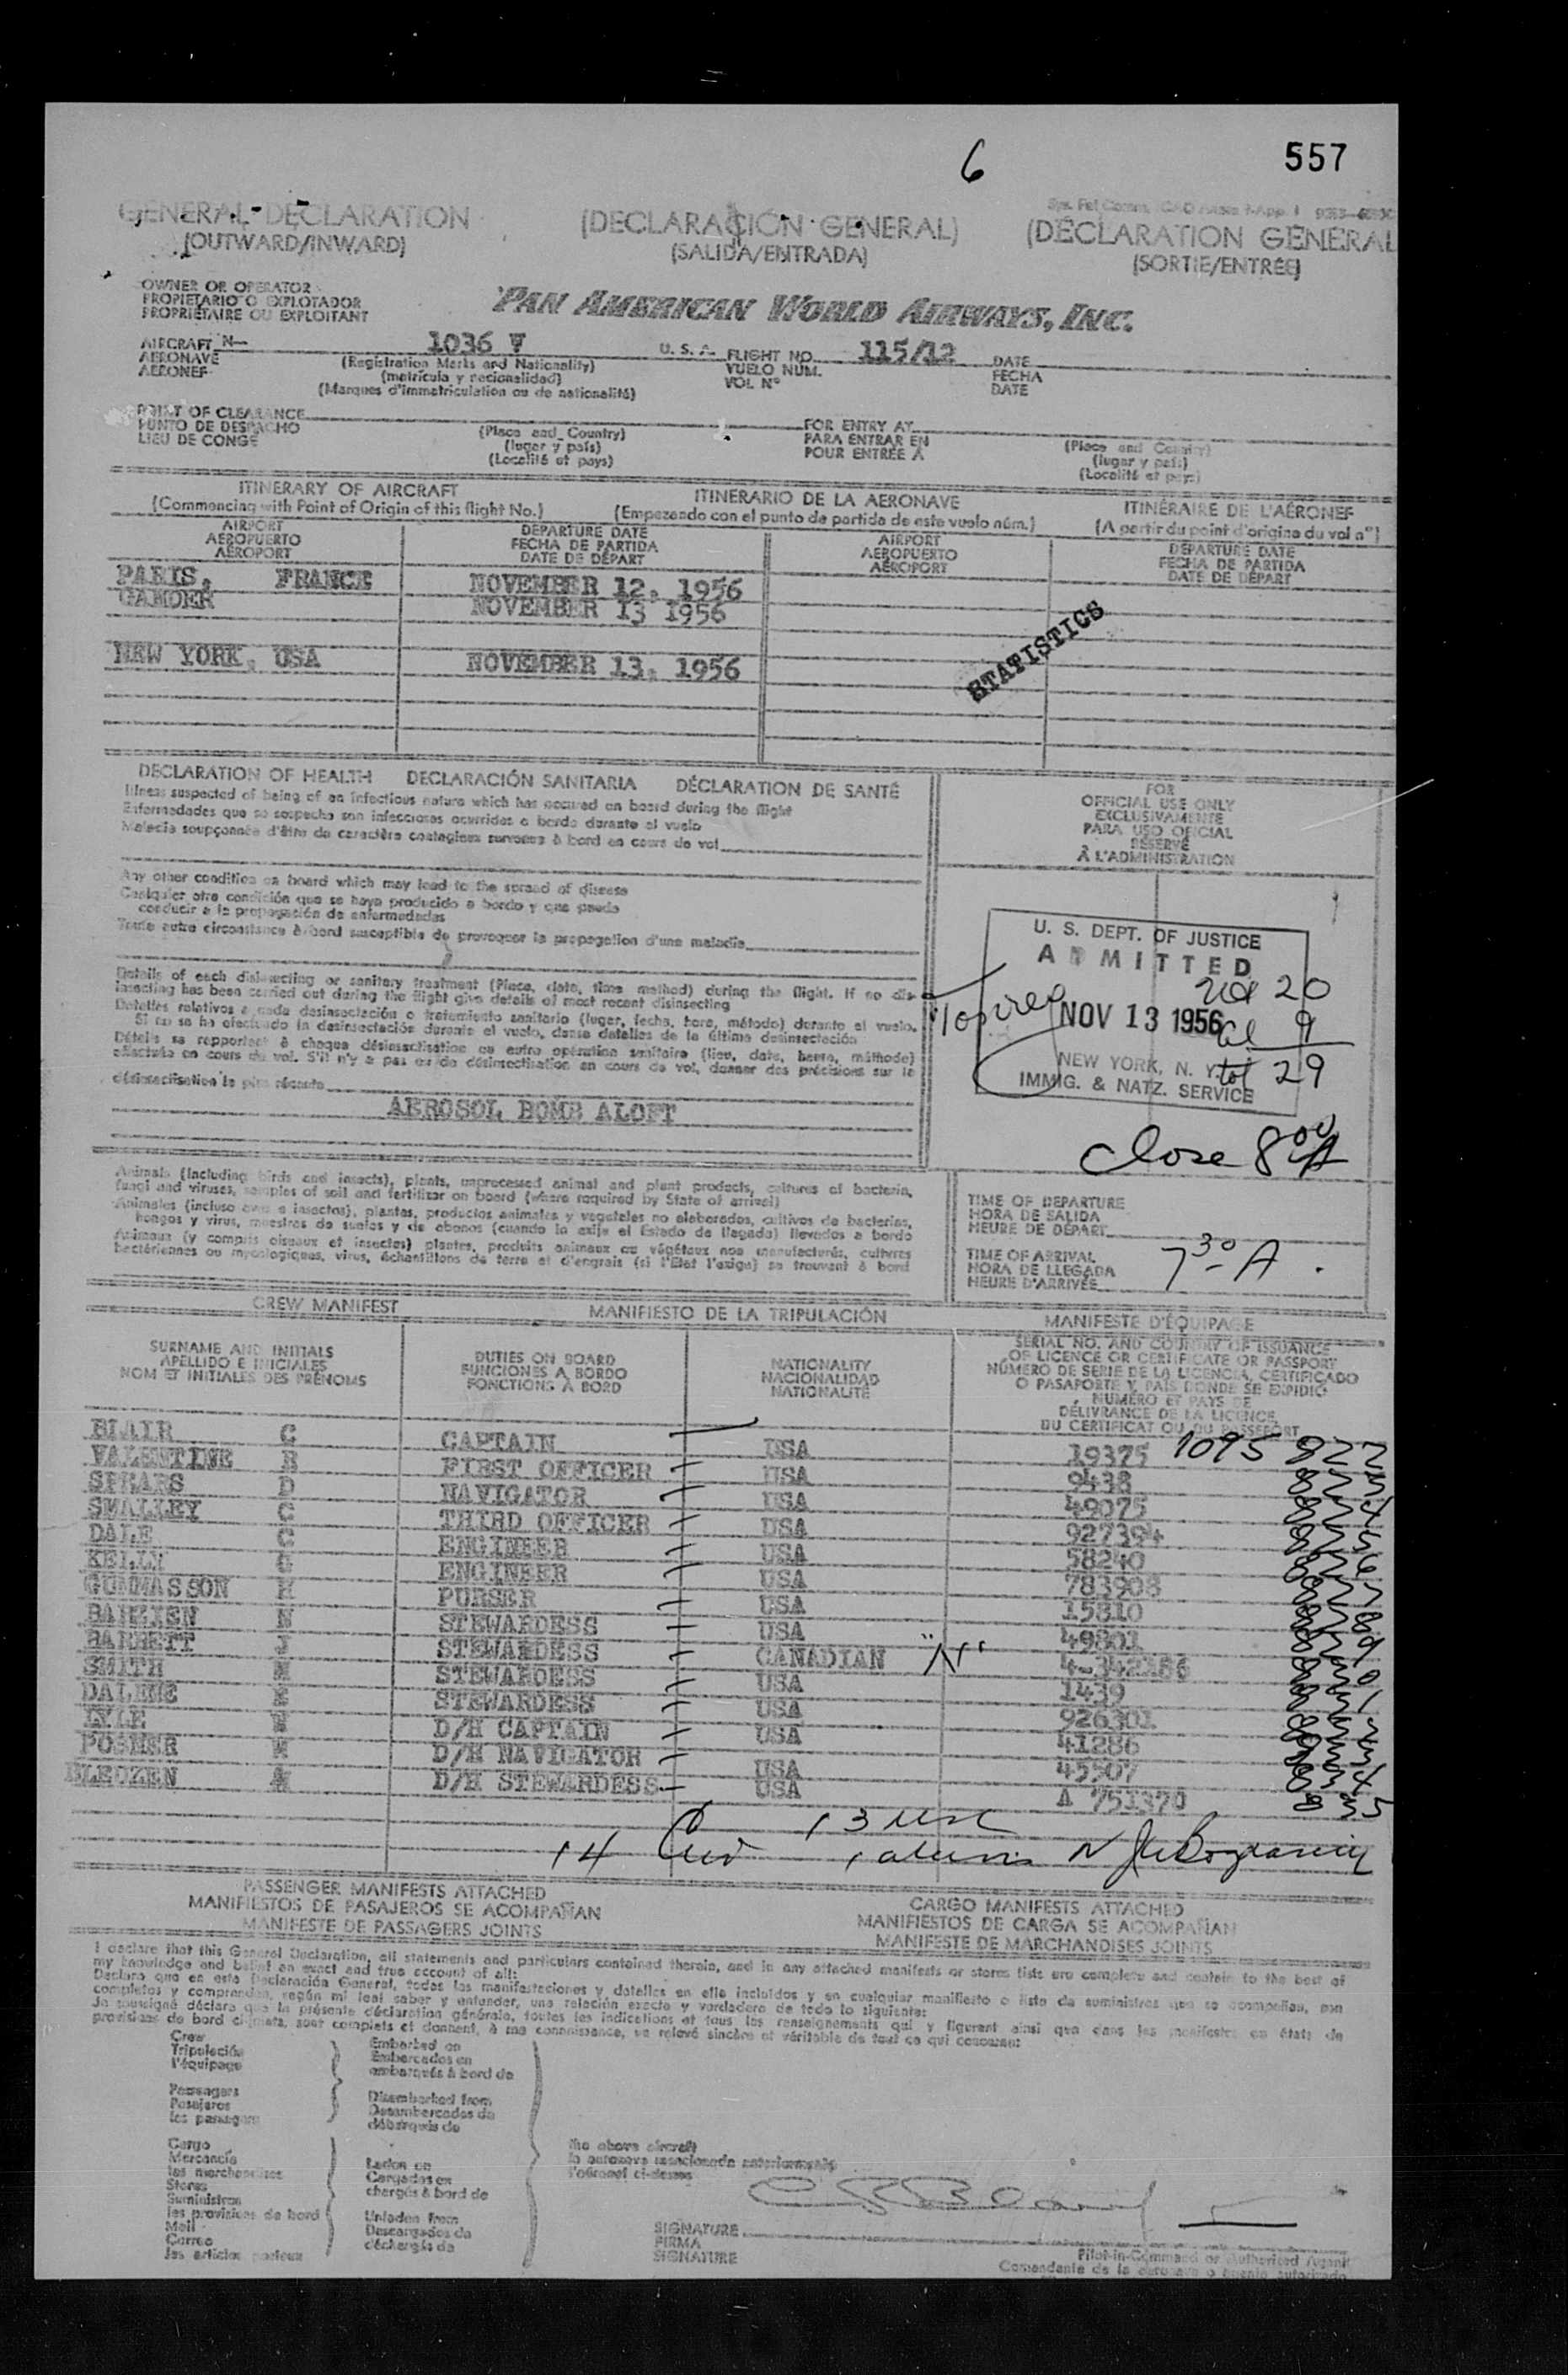 6
557
GENERAL DECLARATION
(OUTWARD/INWARD)
(DECLARACIÓN GENERAL)
(SALIDA/ENTRADA)
(DÉCLARATION GENERAL
(SORTIE/ENTRÉE)
OWNER OR OPERATOR
PROPIETARIO O EXPLOTADOR
PROPRIÉTAIRE OU EXPLOITANT
PAN AMERICAN WORLD AIRWAYS, INC.
AIRCRAFT N— 1036 V U. S. A. FLIGHT NO. 115/12 DATE
AERONAVE (Registration Marks and Nationality) VUELO NÚM. FECHA
AERONEF (matrícula y nacionalidad) VOL Nº DATE
(Marques d'immatriculation ou de nationalité)
POINT OF CLEARANCE FOR ENTRY AT
PUNTO DE DESPACHO (Place and Country) PARA ENTRAR EN (Place and Country)
LIEU DE CONGÉ (lugar y país) POUR ENTRÉE À (lugar y país)
(Localité et pays) (Localité et pays)
ITINERARY OF AIRCRAFT ITINERARIO DE LA AERONAVE ITINÉRAIRE DE L'AÉRONEF
(Commencing with Point of Origin of this flight No.) (Empezando con el punto de partida de este vuelo núm.) (A partir du point d'origine du vol nº)
AIRPORT DEPARTURE DATE AIRPORT DEPARTURE DATE
AEROPUERTO FECHA DE PARTIDA AEROPUERTO FECHA DE PARTIDA
AÉROPORT DATE DE DÉPART AÉROPORT DATE DE DÉPART
PARIS, FRANCE NOVEMBER 12, 1956
GANDER NOVEMBER 13 1956
STATISTICS
NEW YORK, USA NOVEMBER 13, 1956
DECLARATION OF HEALTH DECLARACIÓN SANITARIA DÉCLARATION DE SANTÉ
Illness suspected of being of an infectious nature which has occured on board during the flight
Enfermedades que se sospecha son infecciosas ocurridas a bordo durante el vuelo
Maladie soupçonnée d'être de caractère contagieux survenus à bord en cours de vol
FOR
OFFICIAL USE ONLY
EXCLUSIVAMENTE
PARA USO OFICIAL
RÉSERVÉ
À L'ADMINISTRATION
Any other condition on board which may lead to the spread of disease
Cualquier otra condición que se haya producido a bordo y que pueda
conducir a la propagación de enfermedades
Toute autre circonstance à bord susceptible de provoquer la propagation d'une maladie
U. S. DEPT. OF JUSTICE
ADMITTED
20
NOV 13 1956 9
NEW YORK, N. Y. tot 29
IMMIG. & NATZ. SERVICE
Close 8 00 A
Details of each disinsecting or sanitary treatment (Place, date, time method) during the flight. If no dis-
insecting has been carried out during the flight give details of most recent disinsecting
Detalles relativos a cada desinsectación o tratamiento sanitario (lugar, fecha, hora, método) durante el vuelo.
Si no se ha efectuado la desinsectación durante el vuelo, danse detalles de la última desinsectación
Détails se rapportant à chaque désinsectisation ou autre opération sanitaire (lieu, date, heure, méthode)
effectuée en cours du vol. S'il n'y a pas eu de désinsectisation en cours de vol, donner des précisions sur la
désinsectisation la plus récente
AEROSOL BOMB ALOFT
Animals (Including birds and insects), plants, unprocessed animal and plant products, cultures of bacteria,
fungi and viruses, samples of soil and fertilizer on board (where required by State of arrival)
Animales (incluso aves e insectos), plantas, productos animales y vegetales no elaborados, cultivos de bacterias,
hongos y virus, muestras de suelos y de abonos (cuando lo exija el Estado de llegada) llevados a bordo
Animaux (y compris oiseaux et insectes) plantes, produits animaux ou végétaux non manufacturés, cultures
bactériennes ou mycologiques, virus, échantillons de terre et d'engrais (si l'État l'exige) se trouvant à bord
TIME OF DEPARTURE
HORA DE SALIDA
HEURE DE DÉPART
TIME OF ARRIVAL
HORA DE LLEGADA
HEURE D'ARRIVÉE
7 30 A
CREW MANIFEST MANIFIESTO DE LA TRIPULACIÓN MANIFESTE D'ÉQUIPAGE
SURNAME AND INITIALS
APELLIDO E INICIALES
NOM ET INITIALES DES PRÉNOMS
DUTIES ON BOARD
FUNCIONES A BORDO
FONCTIONS À BORD
NATIONALITY
NACIONALIDAD
NATIONALITÉ
SERIAL NO. AND COUNTRY OF ISSUANCE
OF LICENCE OR CERTIFICATE OR PASSPORT
NÚMERO DE SERIE DE LA LICENCIA, CERTIFICADO
O PASAPORTE Y PAÍS DONDE SE EXPIDIÓ
NUMÉRO ET PAYS DE
DÉLIVRANCE DE LA LICENCE
DU CERTIFICAT OU DU PASSEPORT
BLAIR C CAPTAIN USA 19375 1095 822
VALENTINE R FIRST OFFICER USA 9438
SPEARS D NAVIGATOR USA 49075
SMALLEY C THIRD OFFICER USA 927394
DALE C ENGINEER USA 58240
KELLY ENGINEER USA 783908
GUNNASSON PURSER USA 15810
STEWARDESS USA 49801
BARRETT J STEWARDESS CANADIAN "N" 4-342186
SMITH STEWARDESS USA 1439
STEWARDESS USA 926301
LYLE D/H CAPTAIN USA 41286
POSNER D/H NAVIGATOR USA 45507
D/H STEWARDESS USA A 751370
13 usc
14
PASSENGER MANIFESTS ATTACHED
MANIFIESTOS DE PASAJEROS SE ACOMPAÑAN
MANIFESTE DE PASSAGERS JOINTS
CARGO MANIFESTS ATTACHED
MANIFIESTOS DE CARGA SE ACOMPAÑAN
MANIFESTE DE MARCHANDISES JOINTS
I declare that this General Declaration, all statements and particulars contained therein, and in any attached manifests or stores lists are complete and contain to the best of
my knowledge and belief an exact and true account of all:
Declaro que en esta Declaración General, todas las manifestaciones y detalles en ella incluidos y en cualquier manifiesto o lista de suministros que se acompañan, son
completos y comprenden, según mi leal saber y entender, una relación exacta y verdadera de todo lo siguiente:
Je soussigné déclare que la présente déclaration générale, toutes les indications et tous les renseignements qui y figurent ainsi que dans les manifestes ou états de
provisions de bord ci-joints, sont complets et donnent, à ma connaissance, un relevé sincère et véritable de tout ce qui concerne:
Crew
Tripulación
l'équipage
Passengers
Pasajeros
les passagers
Cargo
Mercancía
les marchandises
Stores
Suministros
les provisions de bord
Mail
Correo
les articles postaux
Embarked on
Embarcados en
embarqués à bord de
Disembarked from
Desembarcados de
débarqués de
Laden on
Cargados en
chargés à bord de
Unladen from
Descargados de
déchargés de
the above aircraft
la aeronave mencionada anteriormente
l'aéronef ci-dessus
SIGNATURE
FIRMA
SIGNATURE
Pilot-in-Command or Authorized Agent
Comandante de la aeronave o agente autorizado